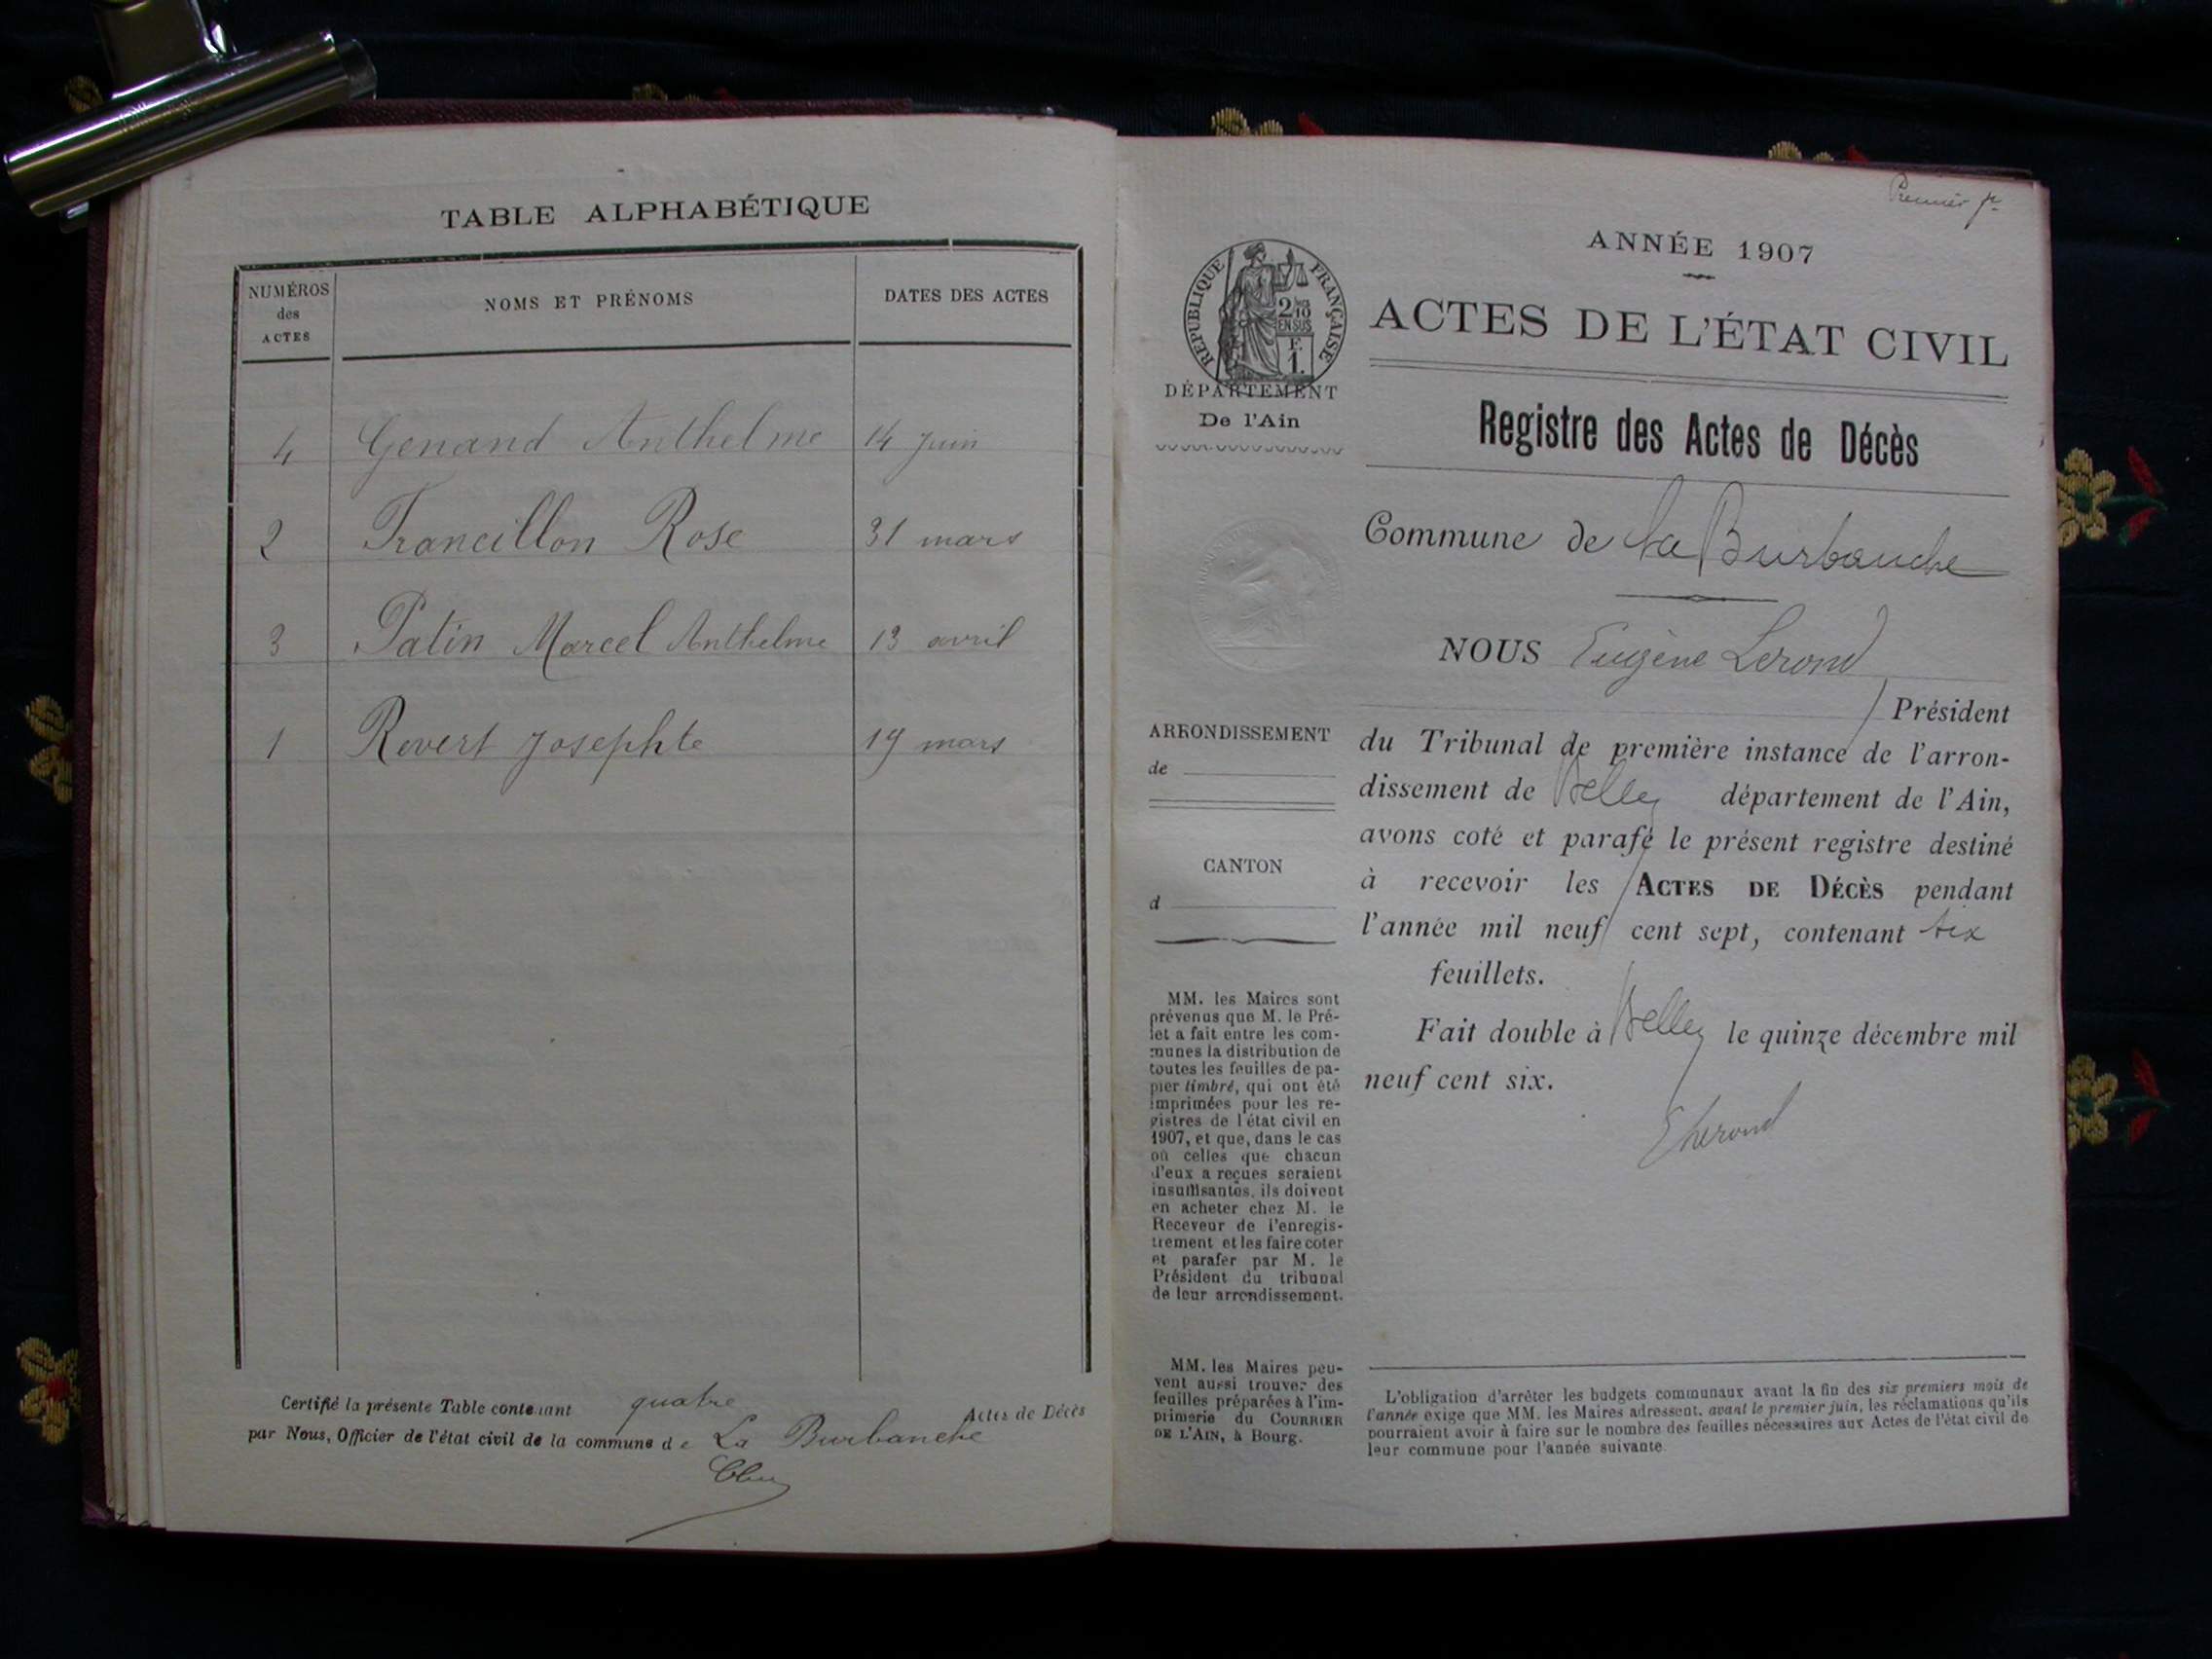 TABLE ALPHABÉTIQUE
NUMÉROS
des
ACTES
NOMS ET PRÉNOMS
DATES DES ACTES
4 Genand Anthelme 14 juin
2 Francillon Rose 31 mars
3 Patin Marcel Anthelme 13 avril
1 Revert Josephte 19 mars
Certifié la présente Table contenant quatre Actes de Décès
par Nous, Officier de l'état civil de la commune de La Burbanche
Premier ft
ANNÉE 1907
RÉPUBLIQUE FRANÇAISE
2/10
EN SUS
F.
1.
ACTES DE L'ÉTAT CIVIL
DÉPARTEMENT
De l'Ain
Registre des Actes de Décès
Commune de La Burbanche
NOUS Eugène Lerond
Président
du Tribunal de première instance de l'arron-
dissement de Belley département de l'Ain,
avons coté et parafé le présent registre destiné
à recevoir les ACTES DE DÉCÈS pendant
l'année mil neuf cent sept, contenant six
feuillets.
Fait double à Belley le quinze décembre mil
neuf cent six.
ELerond
ARRONDISSEMENT
de
CANTON
d
MM. les Maires sont
prévenus que M. le Pré-
fet a fait entre les com-
munes la distribution de
toutes les feuilles de pa-
pier timbré, qui ont été
imprimées pour les re-
gistres de l'état civil en
1907, et que, dans le cas
où celles que chacun
d'eux a reçues seraient
insuffisantes, ils doivent
en acheter chez M. le
Receveur de l'enregis-
trement et les faire coter
et parafer par M. le
Président du tribunal
de leur arrondissement.
MM. les Maires peu-
vent aussi trouver des
feuilles préparées à l'im-
primerie du COURRIER
DE L'AIN, à Bourg.
L'obligation d'arrêter les budgets communaux avant la fin des six premiers mois de
l'année exige que MM. les Maires adressent, avant le premier juin, les réclamations qu'ils
pourraient avoir à faire sur le nombre des feuilles nécessaires aux Actes de l'état civil de
leur commune pour l'année suivante.